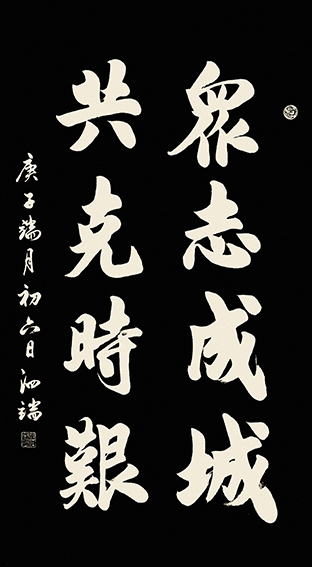 眾志成城
共克時艱
庚子端月初六日泗端